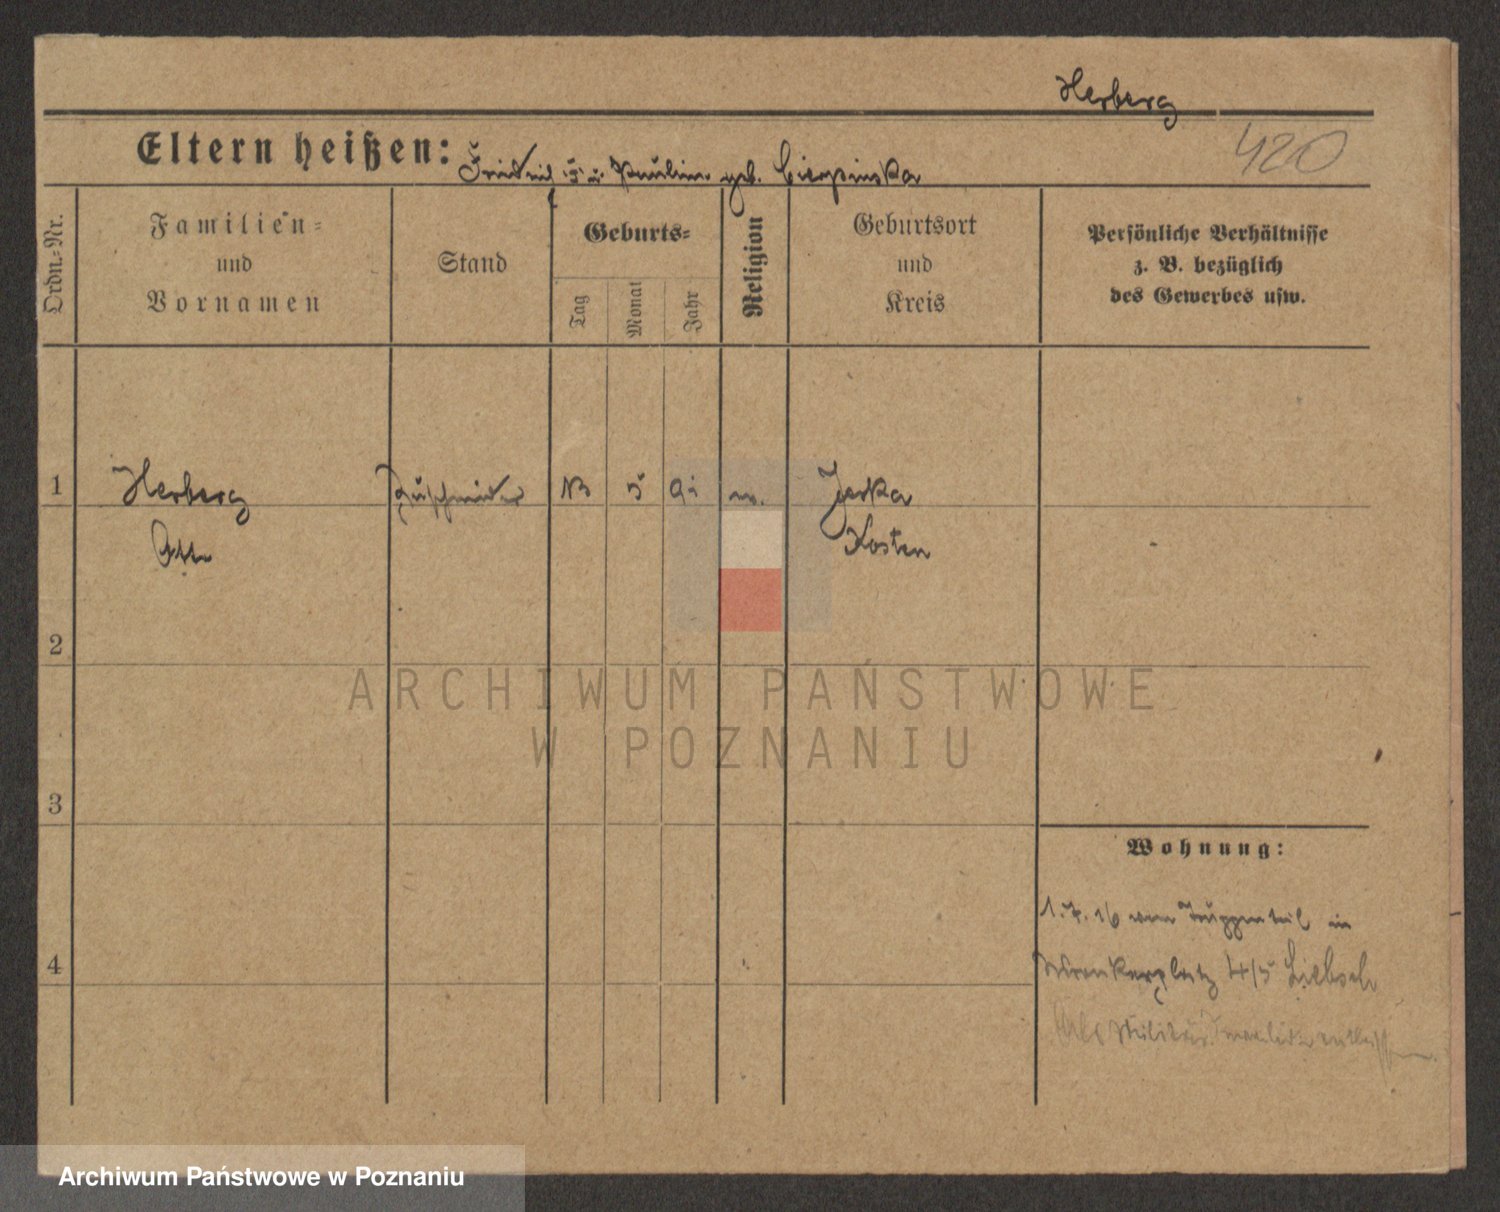 Herberg
420
Eltern heißen: Friedrich u. Pauline geb. Cierpinska
Ordn.-Nr.
Familien-
und
Vornamen
Stand
Geburts-
Tag
Monat
Jahr
Religion
Geburtsort
und
Kreis
Persönliche Verhältnisse
z. B. bezüglich
des Gewerbes usw.
1
Herberg
Zuschneider
5
Jerka
Otto
Kosten
2
3
4
Wohnung:
1.7.16 vom Truppenteil in
4/5 Liebsch
Als Militär Invalide entlassen
ARCHIWUM PAŃSTWOWE
W POZNANIU
Archiwum Państwowe w Poznaniu